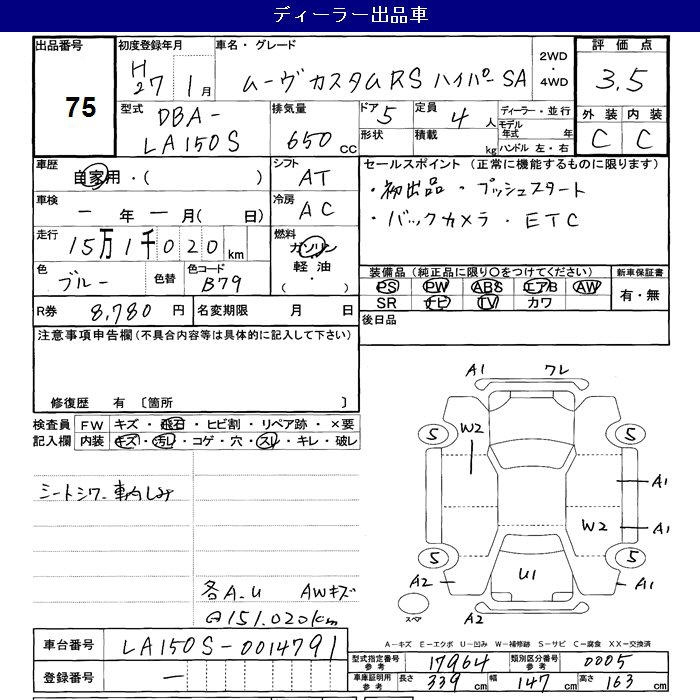 ディーラー出品車
出品番号 75
初度登録年月 H27 1月
車名・グレード ムーヴカスタムRSハイパーSA
2WD・4WD
評価点 3.5
外装 C 内装 C
型式 DBA-LA150S
排気量 650cc
ドア 5
形状
定員 4人
積載 kg
ディーラー・並行
モデル年式 年
ハンドル 左・右
車歴 自家用・( )
シフト AT
セールスポイント (正常に機能するものに限ります)
・初出品・プッシュスタート
・バックカメラ・ETC
車検 ー年ー月( 日)
冷房 AC
走行 15万1千020km
燃料 ガソリン 軽油 ( ・ )
色 ブルー
色替
色コード B79
装備品 (純正品に限り○をつけてください)
新車保証書
PS PW ABS エアB AW
有・無
SR ナビ TV カワ
R券 8,780円
名変期限 月 日
後日品
注意事項申告欄 (不具合内容等は具体的に記入して下さい)
修復歴 有 〔箇所 〕
検査員記入欄
FW キズ・飛石・ヒビ割・リペア跡・×要
内装 キズ・汚レ・コゲ・穴・スレ・キレ・破レ
シートシワ 車内しみ
各A.U AWキズ
151.020km
A1 ワレ
5 5
W2
A1
W2 A1
5 5
A2 U1 A1
A2
スペア
A-キズ E-エクボ U-凹み W-補修跡 S-サビ C-腐食 XX-交換済
車台番号 LA150S-0014791
登録番号 ー
型式指定番号 参考 17964
類別区分番号 参考 0005
車庫証明用 参考 長さ 339cm 幅 147cm 高さ 163cm